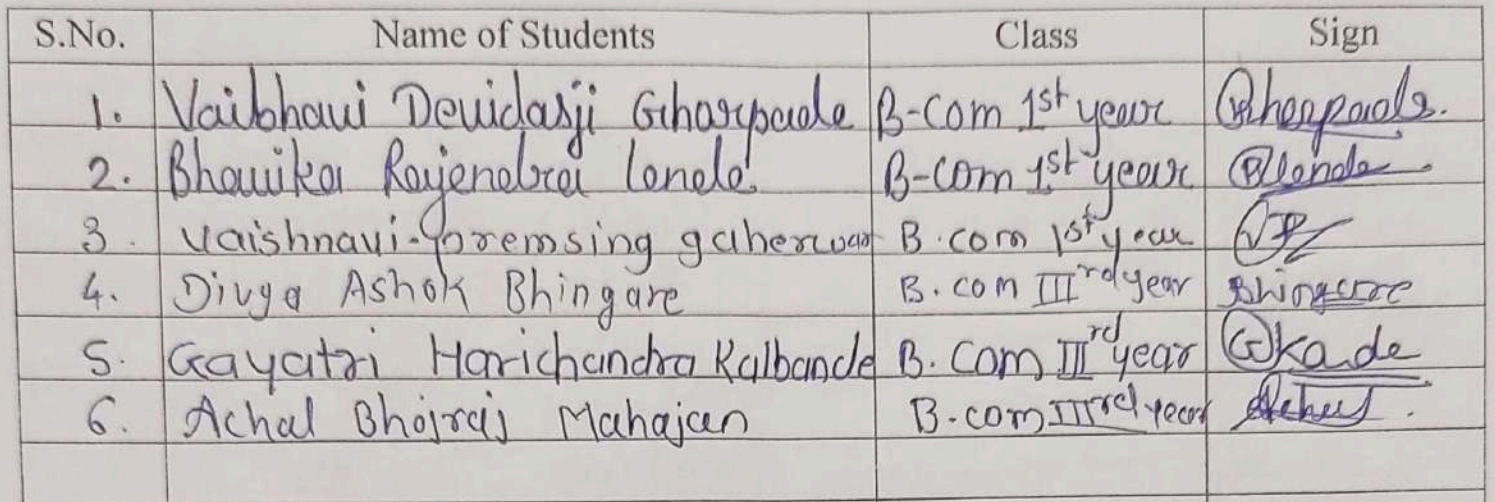 S.No. Name of Students Class Sign
1. Vaibhavi Devidasji Gharpade B-Com 1st year Gharpade.
2. Bhavika Rajendra londe. B-Com 1st year Blonde.
3. Vaishnavi-premsing gaherwar B.com 1st year
4. Divya Ashok Bhingare B.com IIIrd year Bhingare
5. Gayatri Harichandra Kalbande B. Com IIIrd year Gkade
6. Achal Bhojraj Mahajan B.com IIIrd year